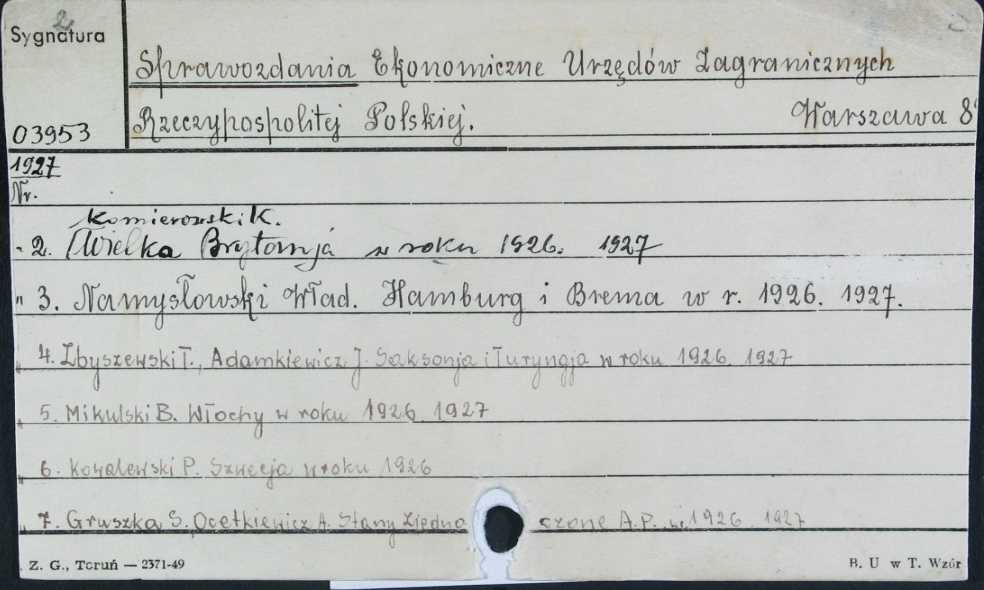 2
Sygnatura
Sprawozdania Ekonomiczne Urzędów Zagranicznych
03953
Rzeczypospolitej Polskiej. Warszawa 8°
1927
Nr.
Komierowski K.
" 2. Wielka Brytanja w roku 1926. 1927
" 3. Namysłowski Wład. Hamburg i Brema w r. 1926. 1927.
" 4. Zbyszewski T., Adamkiewicz J. Saksonja i Turyngja w roku 1926. 1927
" 5. Mikulski B. Włochy w roku 1926. 1927
" 6. Kowalewski P. Szwecja w roku 1926
" 7. Gruszka S., Ocetkiewicz A. Stany Zjedno czone A.P. w 1926. 1927
Z. G., Toruń — 2371-49 B. U w T. Wzór